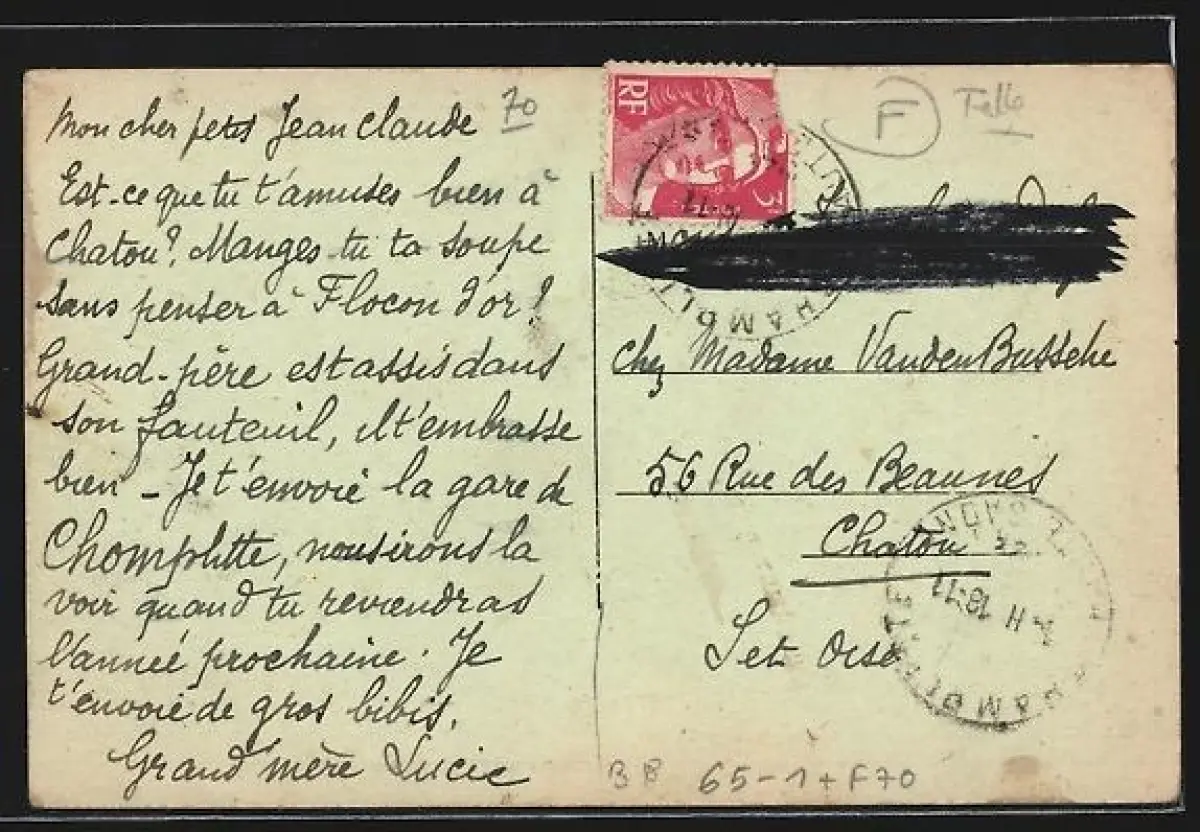 Mon cher petit Jean Claude
70
Est-ce que tu t'amuses bien à
Chatou? Manges tu ta soupe
sans penser à Flocon d'or!
Grand-père est assis dans
son fauteuil, il t'embrasse
bien - Je t'envoie la gare de
Champlitte, nous irons la
voir quand tu reviendras
l'année prochaine. Je
t'envoie de gros bibis.
Grand mère Lucie
RF
3
F
chez Madame VandenBussche
56 Rue des Beaunes
Chatou
S et Oise
BB 65-1+F70